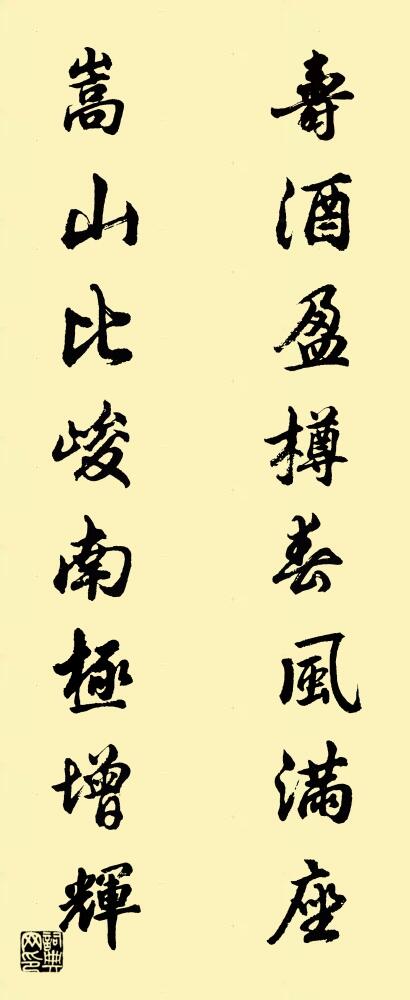 壽酒盈樽春風満座
嵩山比峻南極增輝
詞典网印